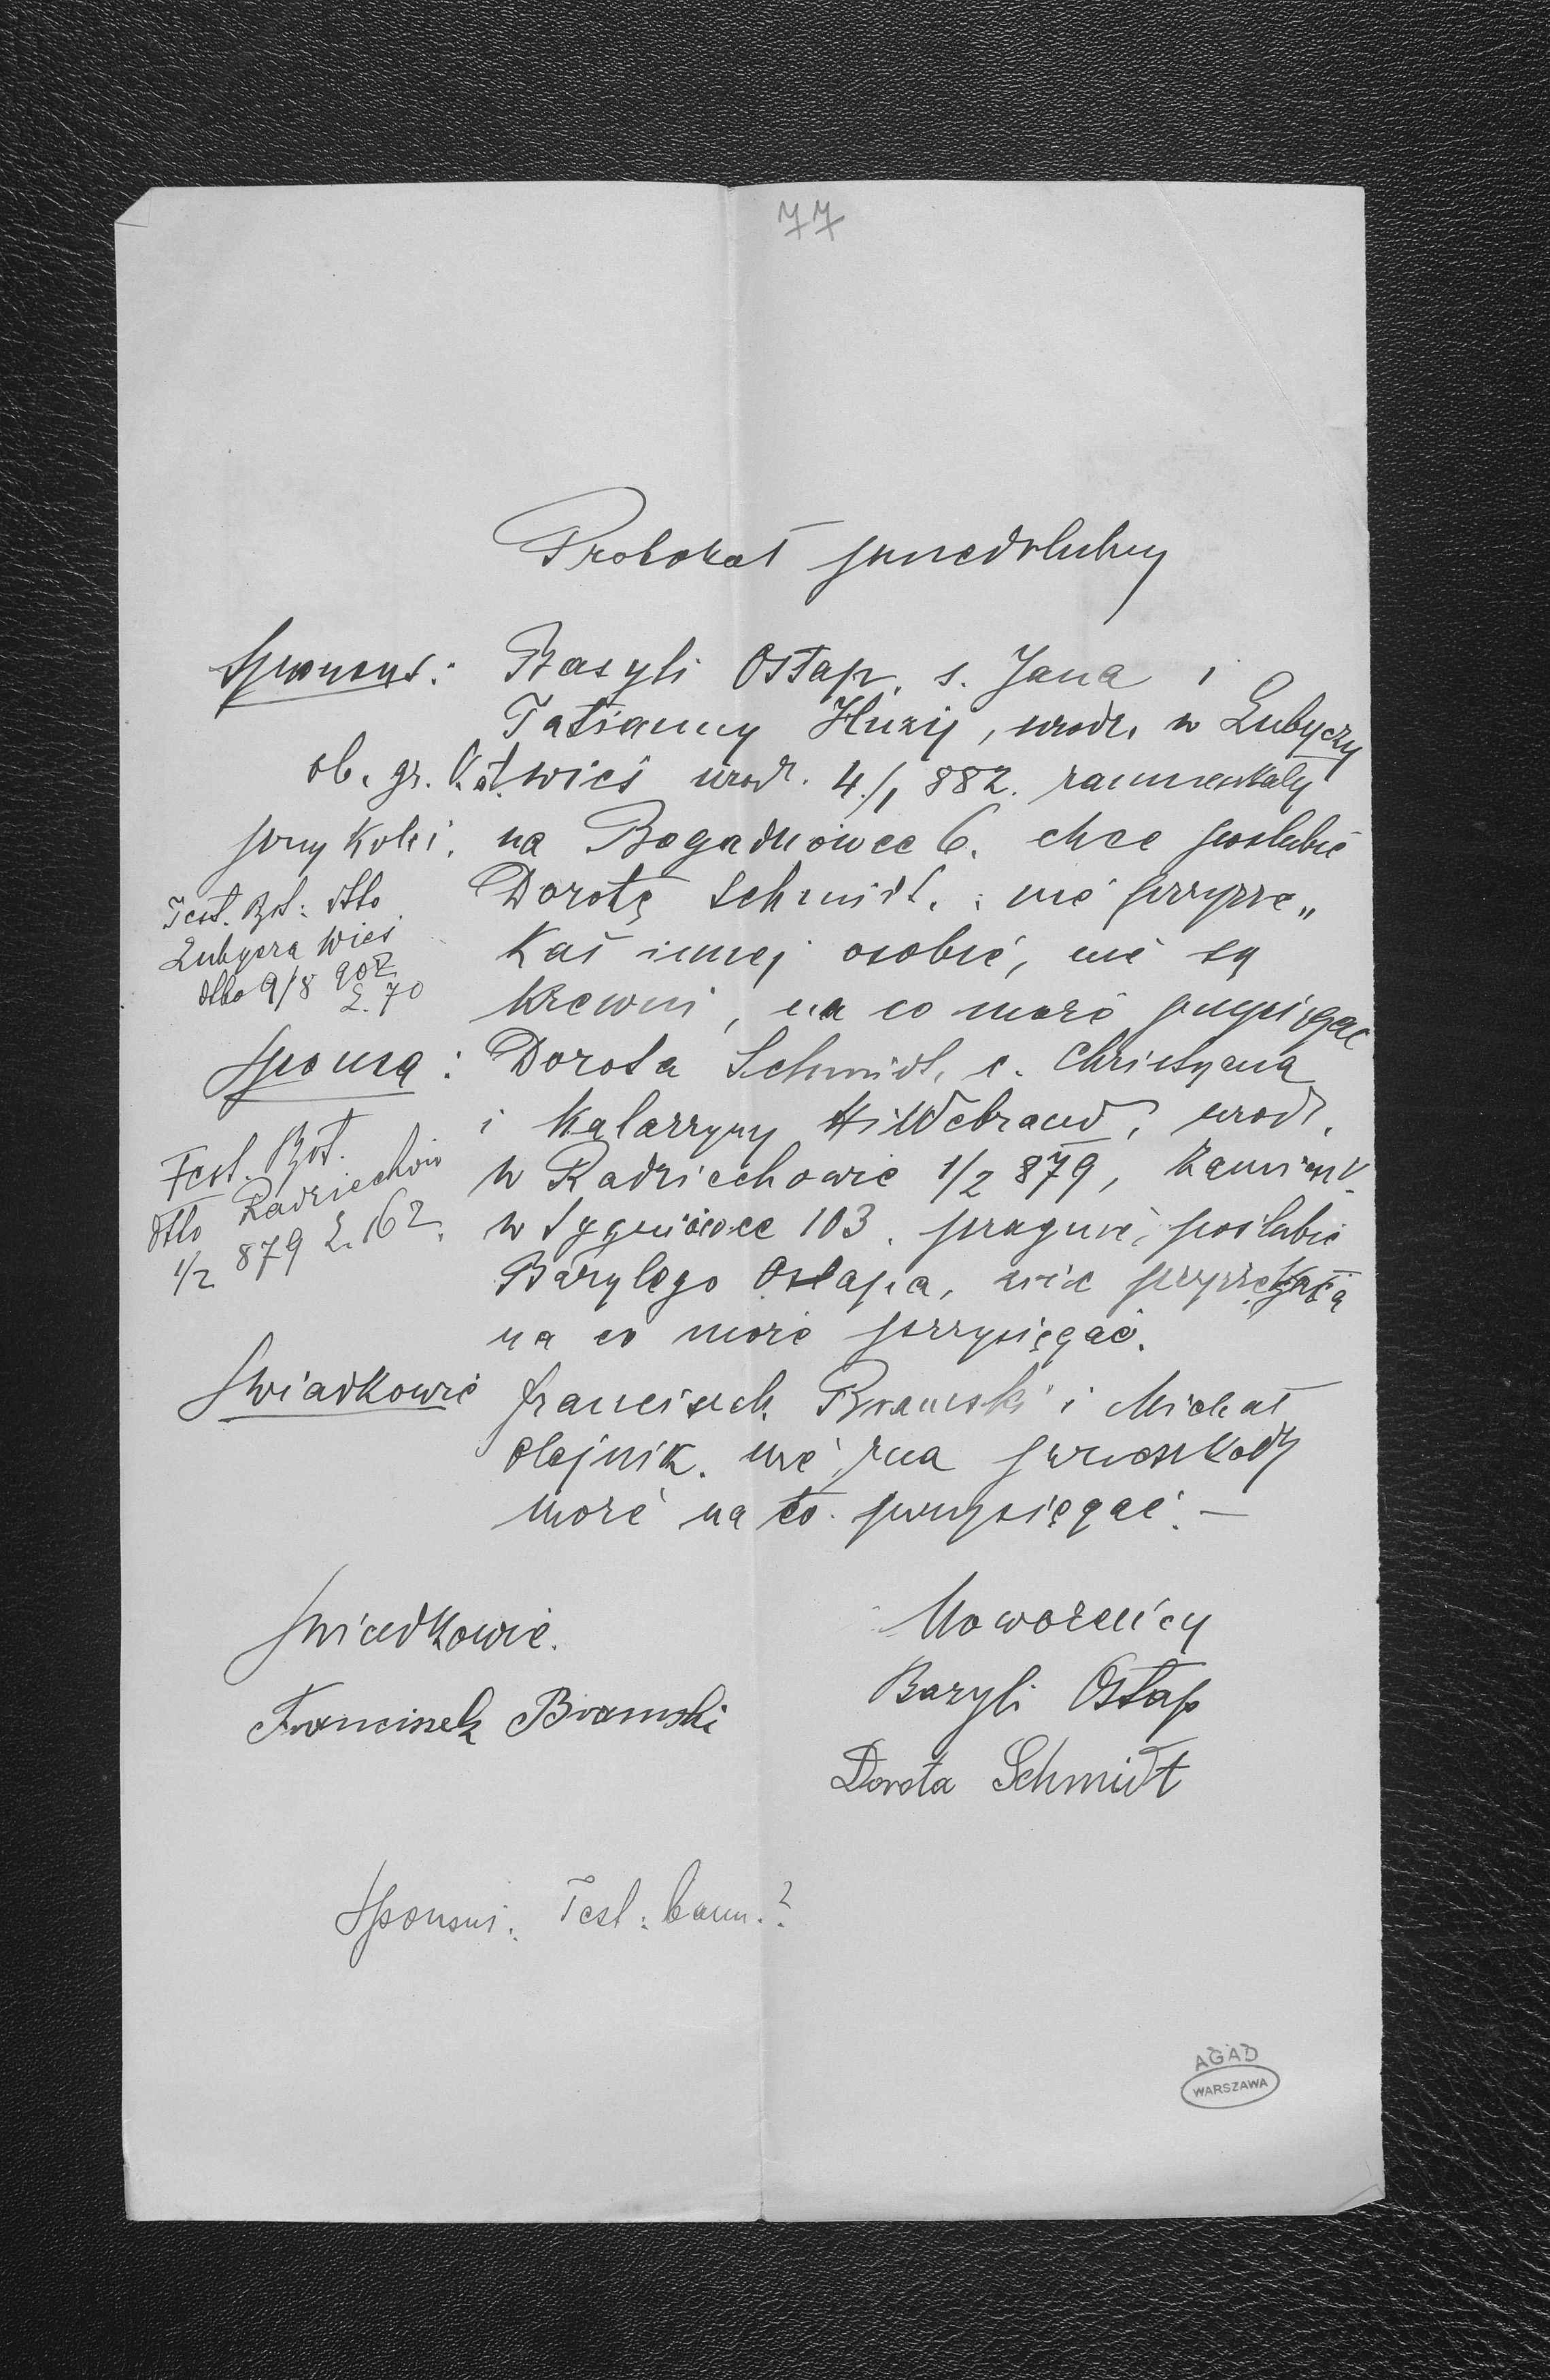 77
Protokoł przedślubny
Sponsus: Bazyli Ostap, s. Jana i
Tatianny Huzij, urodz. w Lubyczy
ob. gr. kat. wieś urodz. 4/1 882. zamieszkały
przy kolei. na Bogdanówce 6. chce poślubić
Test. Bpt: dtto
Lubycza wieś
dtto 9/8 902
L. 70
Dorotę Schmidt. nie przyrze„
kał innej osobie, nie są
krewni, na co może przysięgać
Sponsa: Dorota Schmidt, c. Christyana
i Katarzyny Hildebrand, urodz.
Test. Bpt.
dtto Radziechów
1/2 879 L. 162.
w Radziechowie 1/2 879, zamieszk.
w Sygniówce 103. pragnie poślubić
Bazylego Ostapa, nie przyrzekała
na co może przysięgać.
Świadkowie Franciszek Bramski i Michał
Olejnik. nie zna przeszkody
może na to przysięgać. —
Świadkowie.
Franciszek Bramski
Nowożeńcy
Bazyli Ostap
Dorota Schmidt
Sponsus: Test: bann.?
AGAD
WARSZAWA